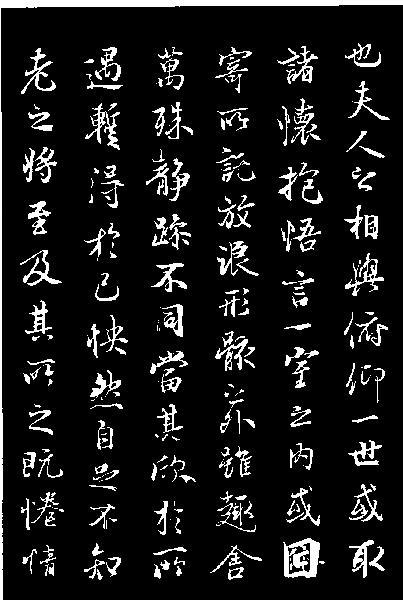 也夫人之相與俯仰一世或取
諸懷抱悟言一室之內或因
寄所託放浪形骸之外雖趣舍
萬殊静躁不同當其欣於所
遇蹔得於己怏然自足不知
老之將至及其所之既惓情